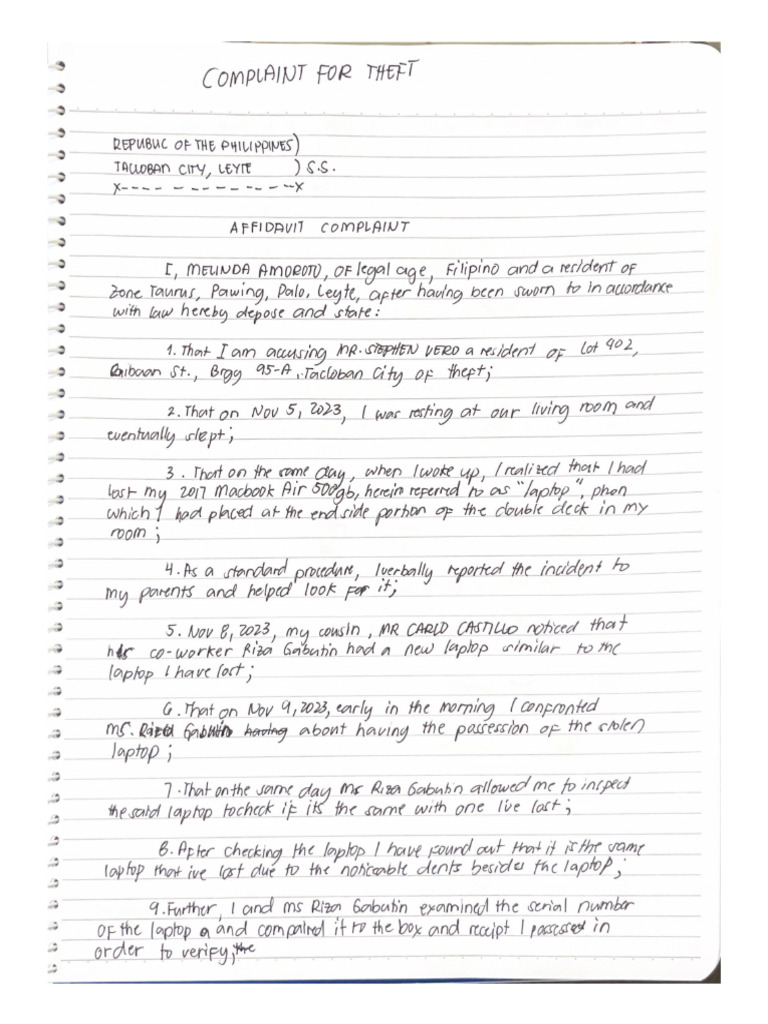 COMPLAINT FOR THEFT
REPUBLIC OF THE PHILIPPINES)
TACLOBAN CITY, LEYTE ) S.S.
X---- - -- - - -- - --X
AFFIDAVIT COMPLAINT
I, MELINDA AMOROTO, OF legal age, Filipino and a resident of
Zone Taurus, Pawing, Palo, Leyte, after having been sworn to in accordance
with law hereby depose and state:
1. That I am accusing MR. STEPHEN VERO a resident of Lot 902,
St., Brgy 95-A, Tacloban City of theft;
2. That on Nov 5, 2023, I was resting at our living room and
eventually slept;
3. That on the same day, when I woke up, I realized that I had
lost my 2017 Macbook Air 500gb, herein referred to as "laptop",
which I had placed at the end side portion of the double deck in my
room;
4. As a standard procedure, I verbally reported the incident to
my parents and helped look for it;
5. Nov 8, 2023, my cousin, MR CARLO CASTILLO noticed that
his co-worker Riza Gabutin had a new laptop similar to the
laptop I have lost;
6. That on Nov 9, 2023, early in the morning I confronted
MS. Riza Gabutin having about having the possession of the stolen
laptop;
7. That on the same day Ms Riza Gabutin allowed me to inspect
the said laptop to check if its the same with one I've lost;
8. After checking the laptop I have found out that it is the same
laptop that ive lost due to the noticable dents besides the laptop;
9. Further, I and ms Riza Gabutin examined the serial number
OF the laptop a and compaired it to the box and receipt I possessed in
order to verify; the